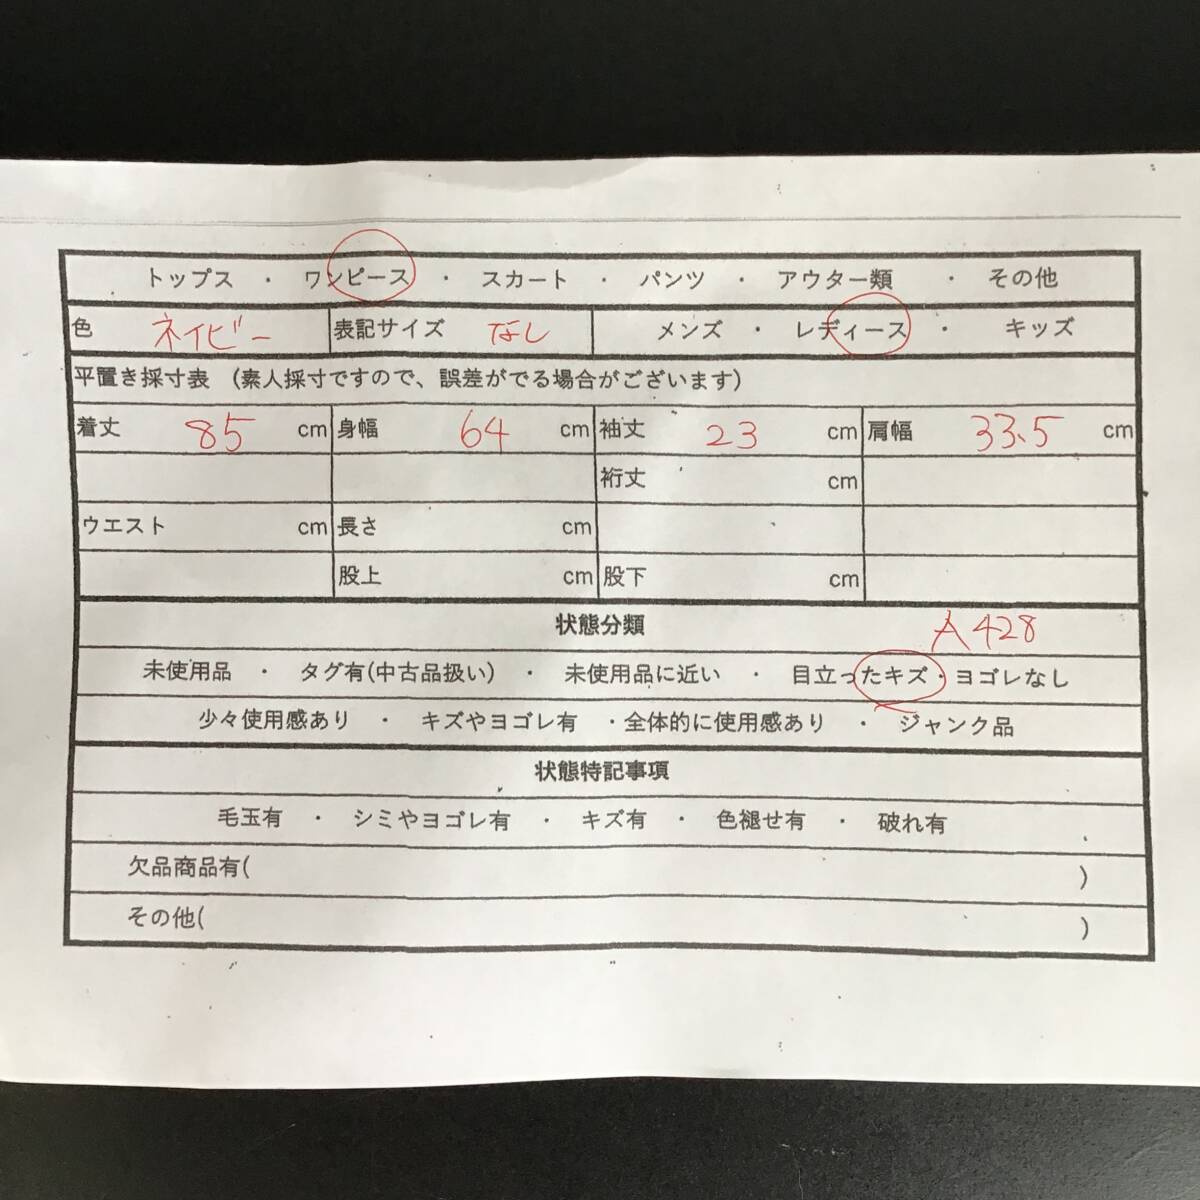 トップス ・ ワンピース ・ スカート ・ パンツ ・ アウター類 ・ その他
色 ネイビー 表記サイズ なし メンズ ・ レディース ・ キッズ
平置き採寸表 (素人採寸ですので、誤差がでる場合がございます)
着丈 85 cm 身幅 64 cm 袖丈 23 cm 肩幅 33.5 cm
裄丈 cm
ウエスト cm 長さ cm
股上 cm 股下 cm
状態分類 A428
未使用品 ・ タグ有(中古品扱い) ・ 未使用品に近い ・ 目立ったキズ・ヨゴレなし
少々使用感あり ・ キズやヨゴレ有 ・全体的に使用感あり ・ ジャンク品
状態特記事項
毛玉有 ・ シミやヨゴレ有 ・ キズ有 ・ 色褪せ有 ・ 破れ有
欠品商品有( )
その他( )